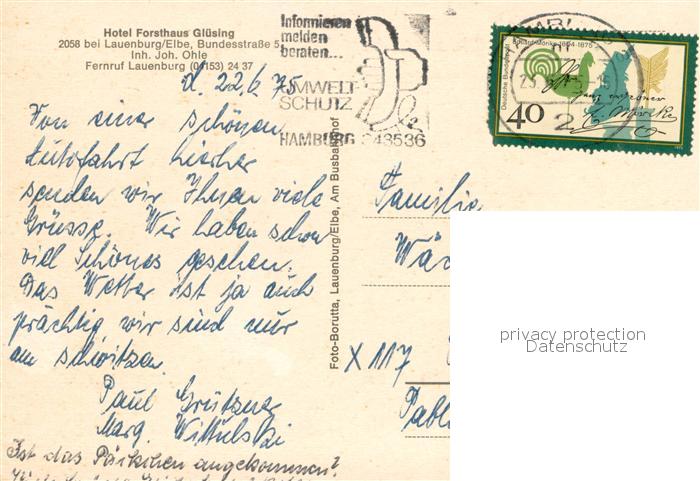 Hotel Forsthaus Glüsing
2058 bei Lauenburg/Elbe, Bundesstraße 5
Inh. Joh. Ohle
Fernruf Lauenburg (04153) 24 37
d. 22.6.75
Von einer schönen
Autofahrt hierher
senden wir Ihnen viele
Grüsse. Wir haben schon
viel Schönes gesehen.
Das Wetter ist ja auch
prächtig wir sind nur
am schwitzen.
Paul Grützner
Marg.
Ist das Päckchen angekommen?
Informieren
melden
beraten...
UMWELT
SCHUTZ
HAMBURG
Foto-Borutta, Lauenburg/Elbe, Am Busbahnhof
Deutsche Bundespost
Eduard Mörike 1804-1875
E. Mörike
40
Familie
X 117
privacy protection
Datenschutz